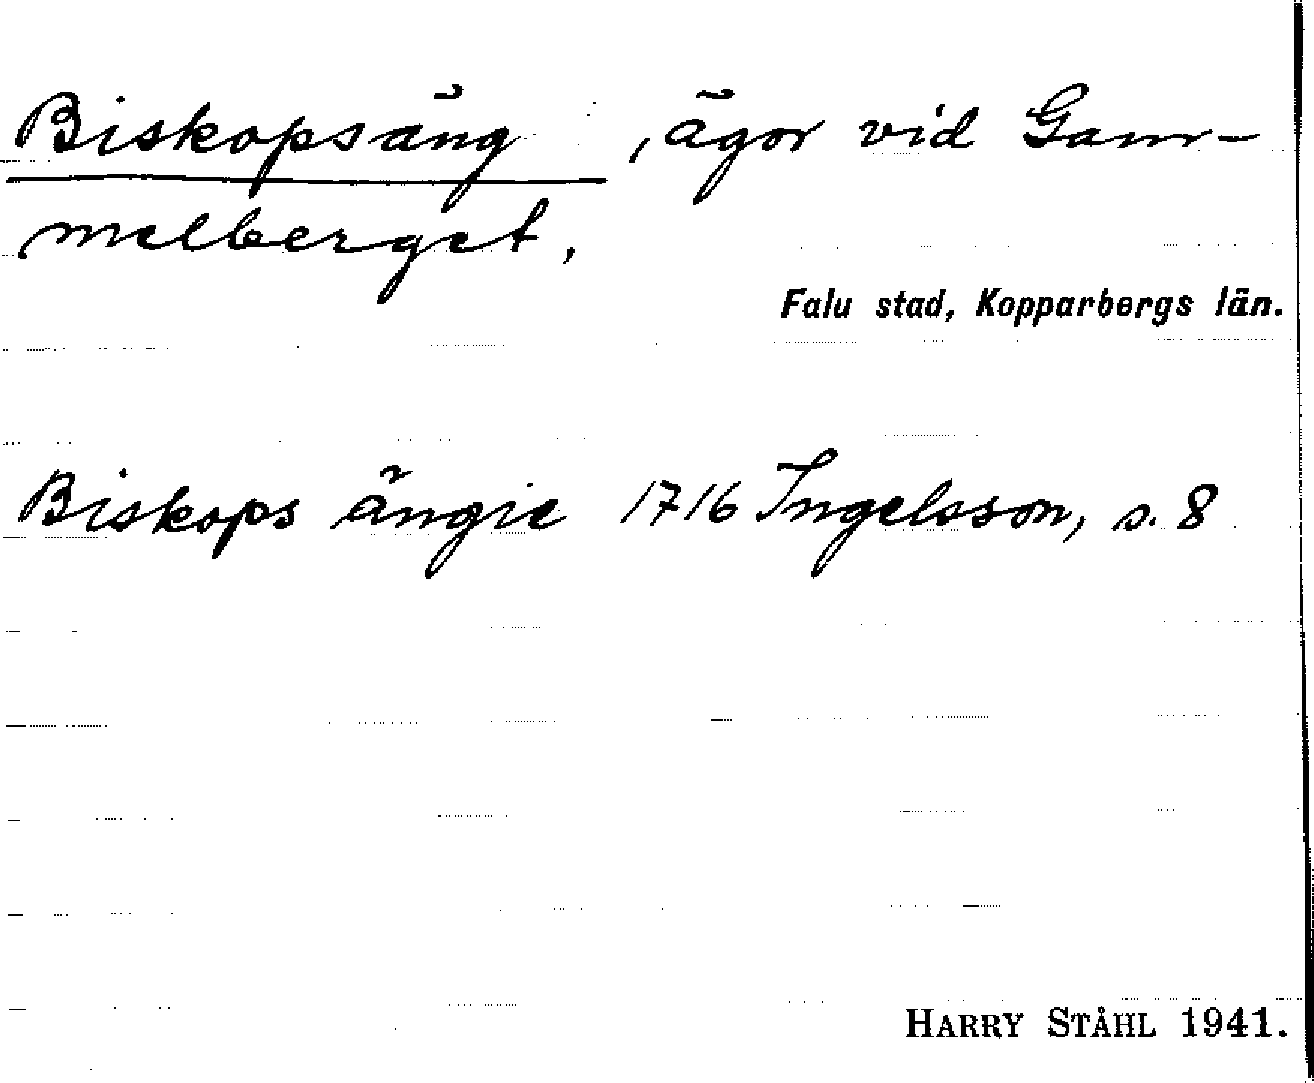 Biskopsäng , ägor vid Gam-
melberget,
Falu stad, Kopparbergs län.
Biskops ängie 1716 Ingelsson, s. 8
HARRY STÅHL 1941.